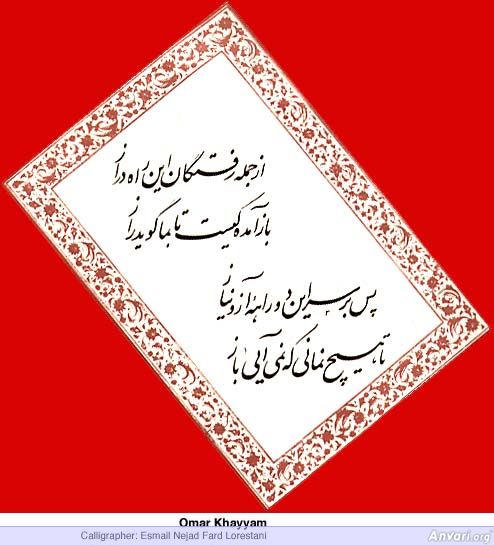 از جمله رفتگان این راه دراز
باز آمده کیست تا بما گوید راز
پس بر سر این دو راههٔ آز و نیاز
تا هیچ نمانی که نمی آیی باز
Omar Khayyam
Calligrapher: Esmail Nejad Fard Lorestani
Anvari.org